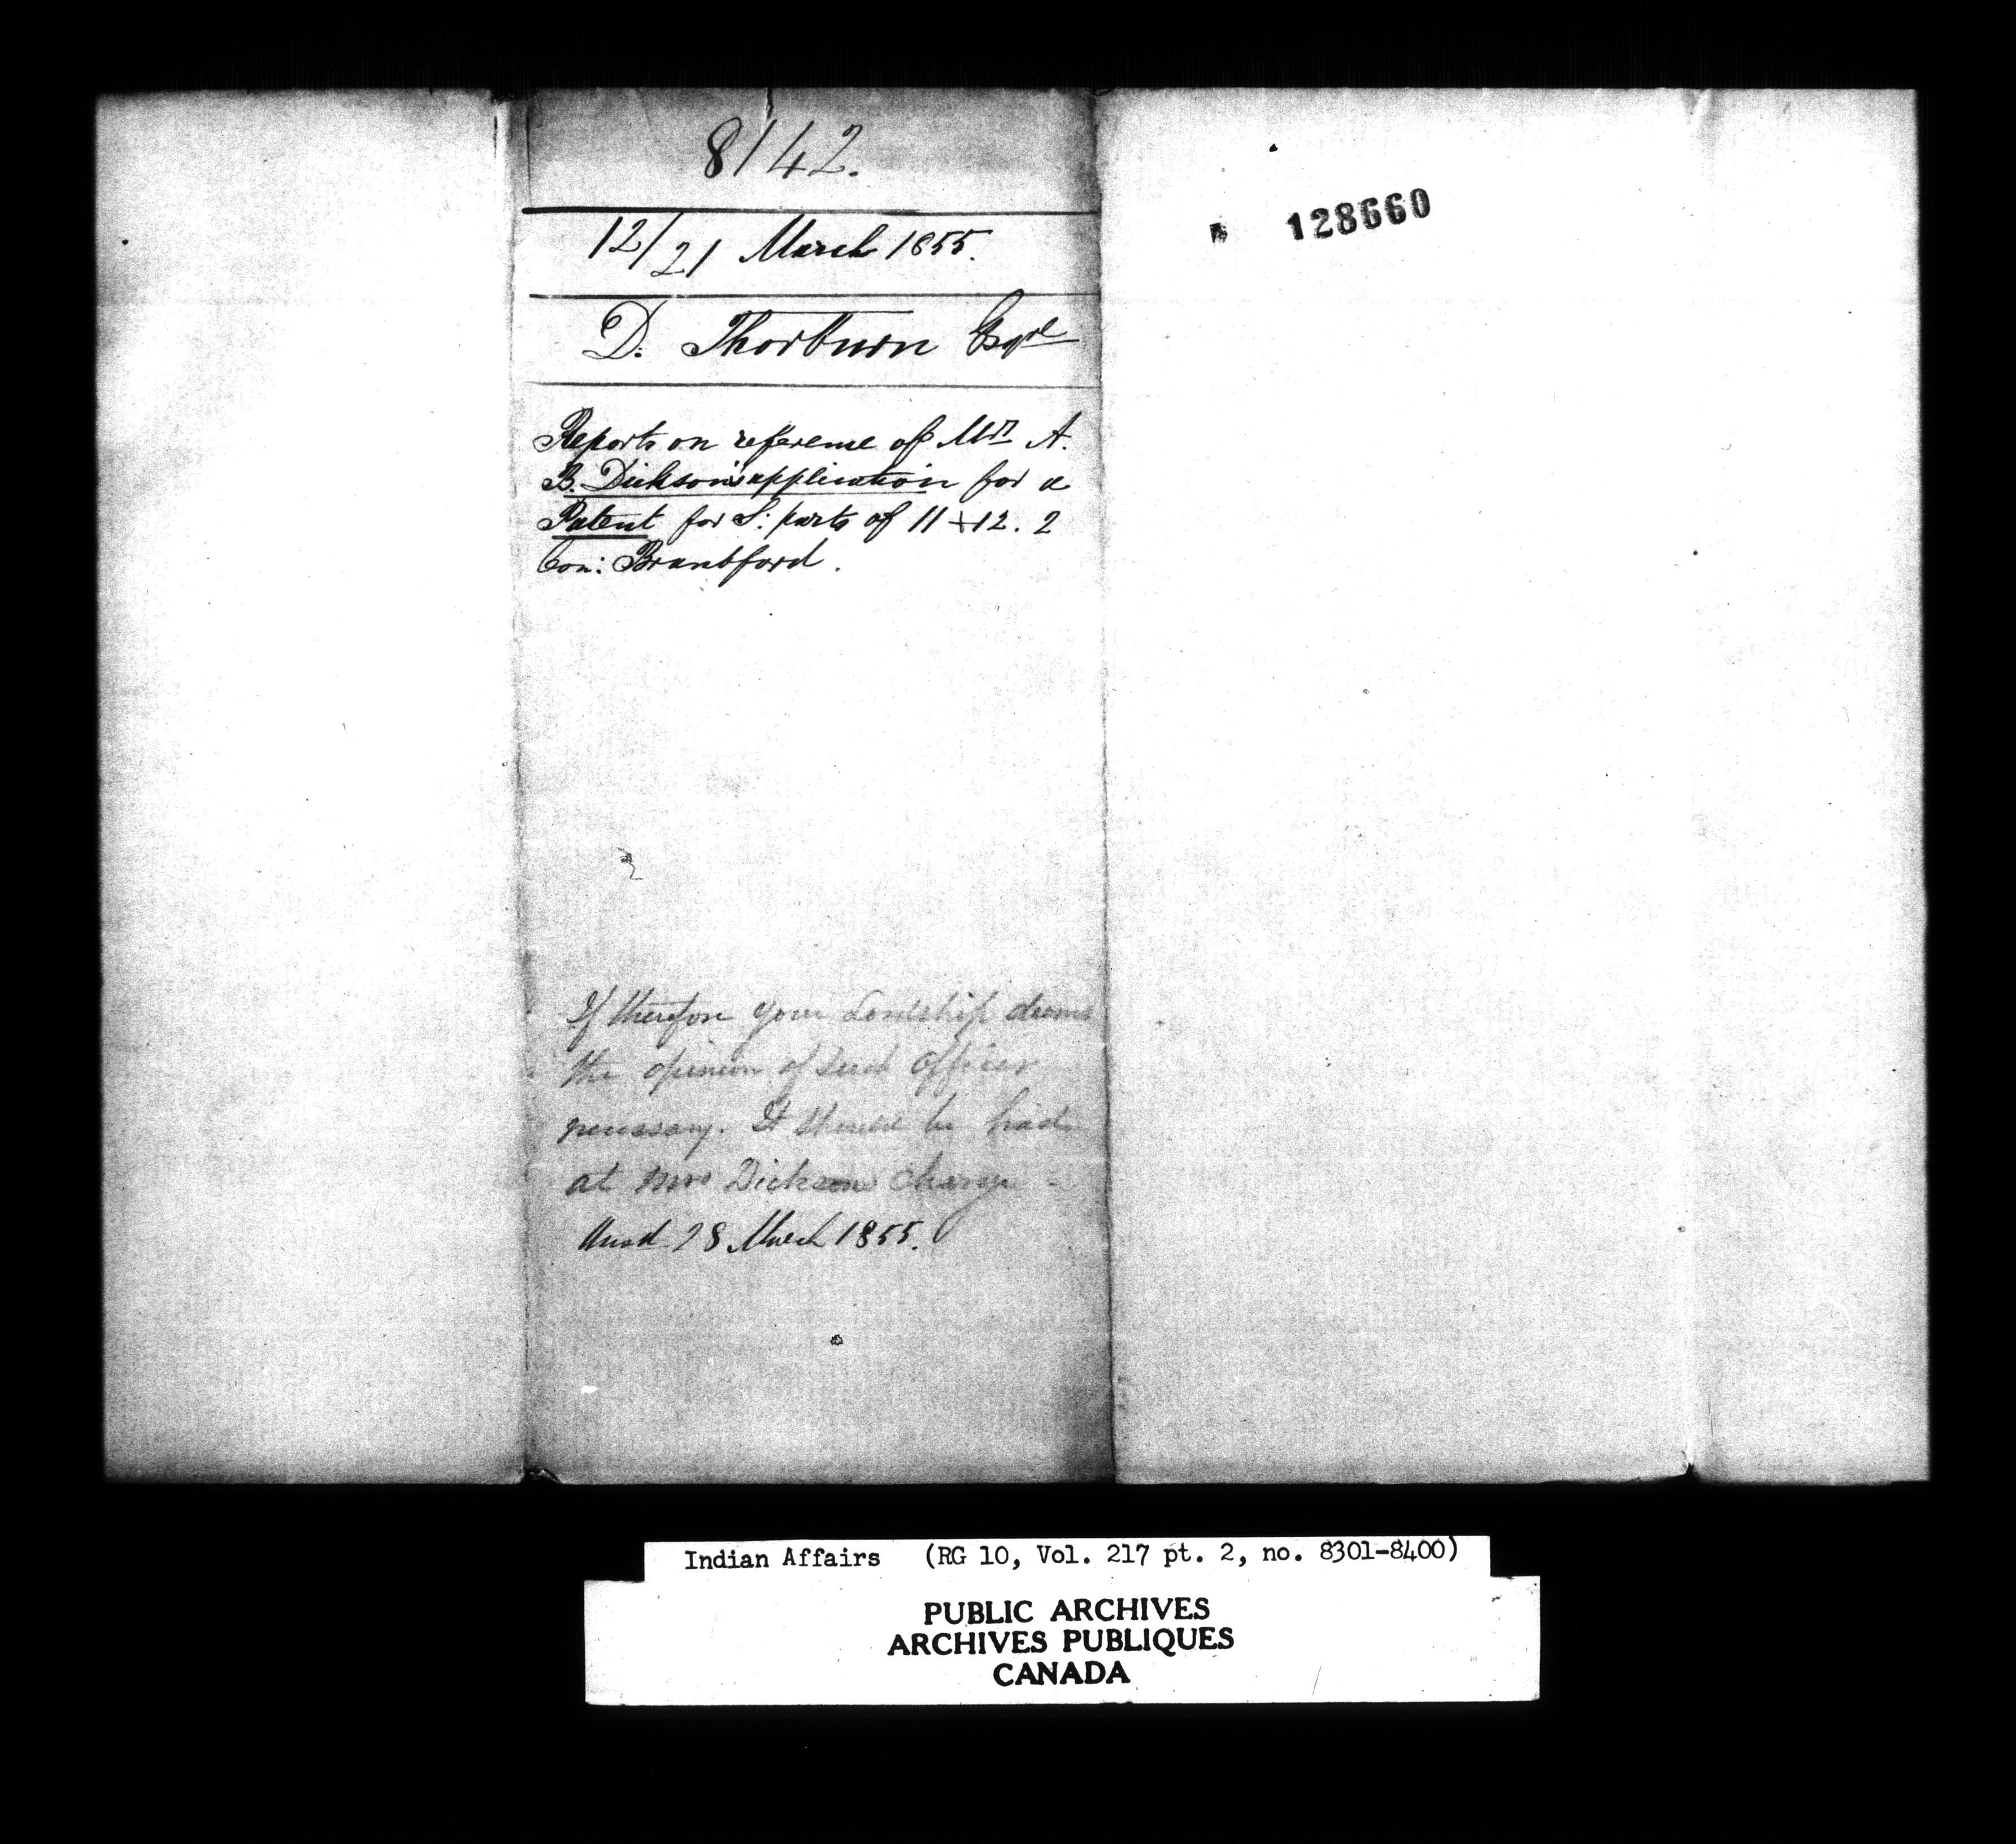 8142.
12/21 March 1855.
D. Thorburn Esqre
Reports on reference of Mrs A.
B. Dickson's application for a
Patent for S: parts of 11 + 12. 2
Con: Brantford.
128660
If therefore your Lordship deems
the opinion of such officer
necessary. It should be had
at Mrs Dicksons charge -
Ansd 28 March 1855.
Indian Affairs (RG 10, Vol. 217 pt. 2, no. 8301-8400)
PUBLIC ARCHIVES
ARCHIVES PUBLIQUES
CANADA